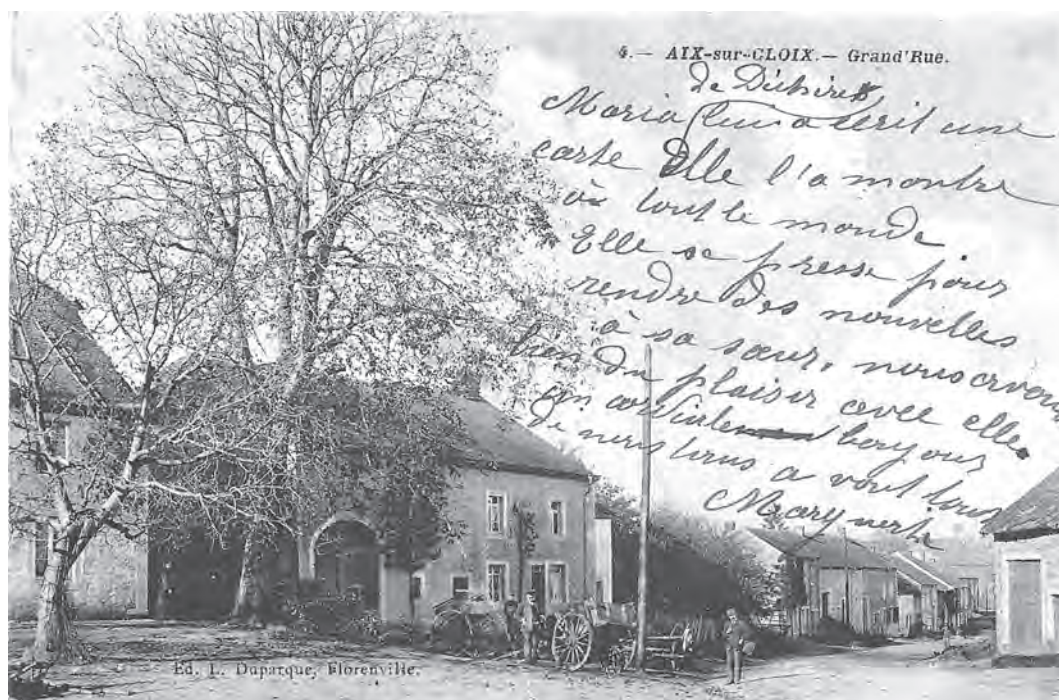 4. — AIX-sur-CLOIX. — Grand'Rue.
de
Maria a écrit une
carte Elle l'a montre
à tout le monde
Elle se presse pour
rendre des nouvelles
à sa sœur, nous avons
bien du plaisir avec elle.
Un bonjour
de nous tous a vous tous
Ed. L. Duparque, Florenville.